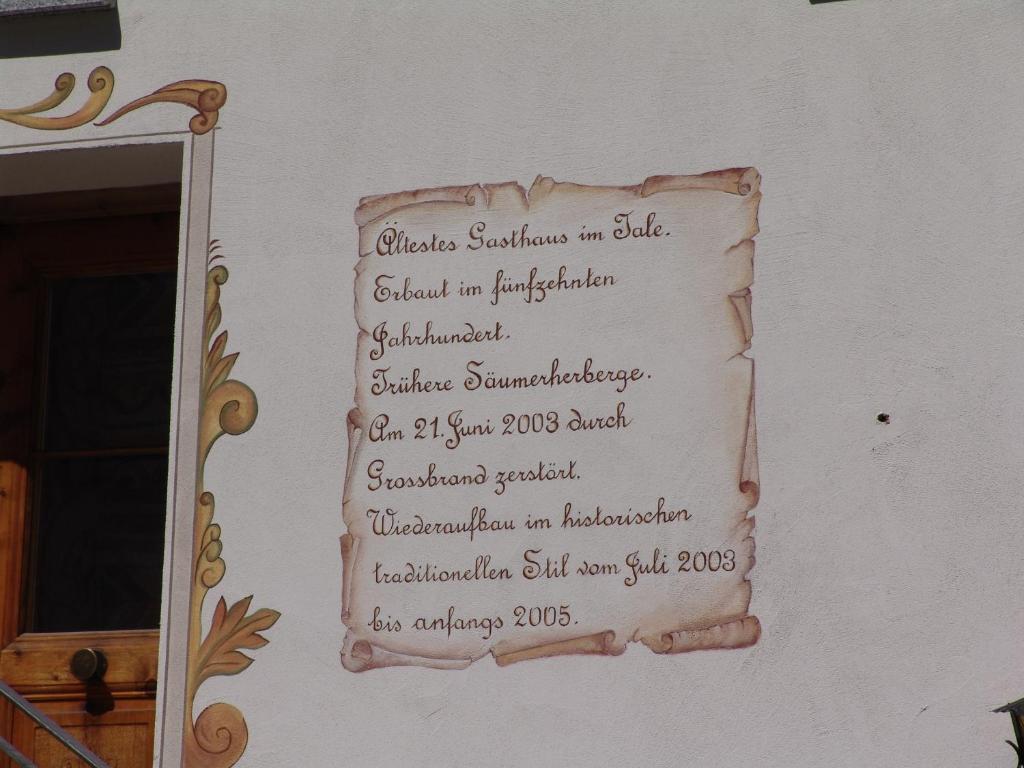 Ältestes Gasthaus im Tale.
Erbaut im fünfzehnten
Jahrhundert.
Frühere Säumerherberge.
Am 21. Juni 2003 durch
Grossbrand zerstört.
Wiederaufbau im historischen
traditionellen Stil vom Juli 2003
bis anfangs 2005.